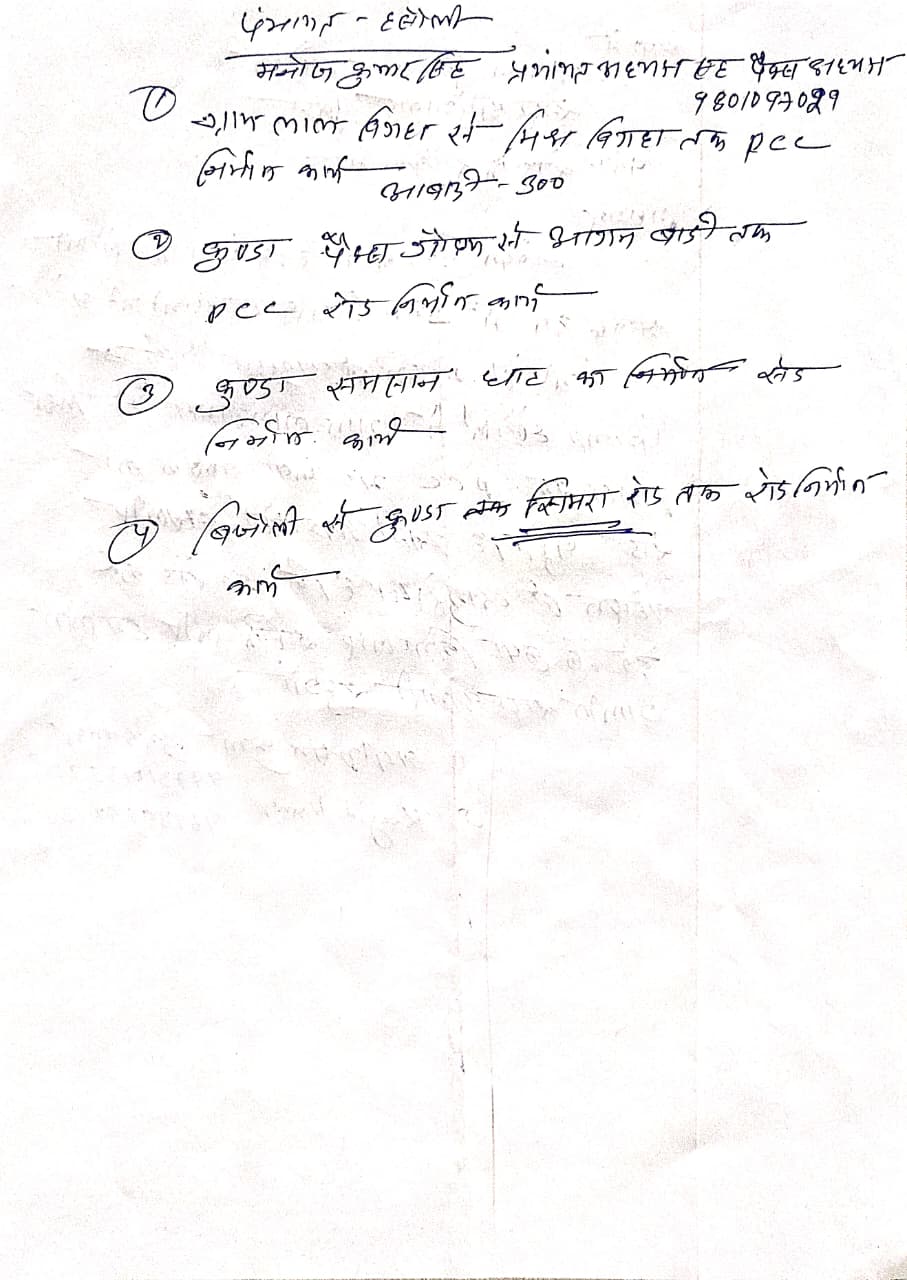 पंचायत - दधौली
मनोज कुमार सिंह पंचायत अध्यक्ष सह पैक्स अध्यक्ष
9801097029
① ग्राम लाल विगहा से मिश्र विगहा तक PCC
निर्माण कार्य
आबादी - 300
② कुण्डा पैक्स गोदाम से आगन बाडी तक
PCC रोड निर्माण कार्य
③ कुण्डा समसान घाट का निर्माण रोड
निर्माण कार्य
④ बिजौली से कुण्डा तक सिमरा रोड तक रोड निर्माण
कार्य